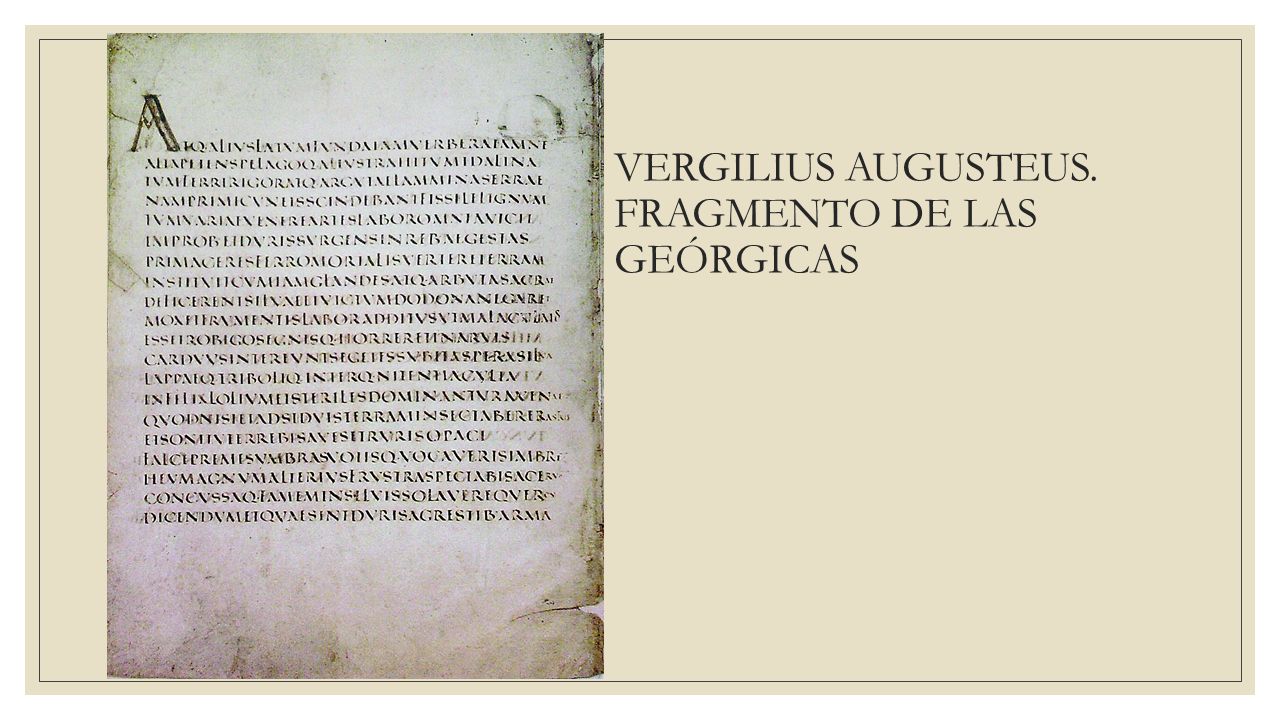 ATQALIVSLATVMFVNDAIAMVERBERATAMNE
ALTAPETENSPELAGOQALIVSTRAHITVMIDALINA
TVMFERRIRIGORATQARGVTAELAMMINASERRAE
NAMPRIMICVNEISSCINDEBANTFISSILELIGNVM
TVMVARIAEVENEREARTESLABOROMNIAVICIT
IMPROBETDVRISSVRGENSINREB·AEGESTAS
PRIMACERESFERROMORTALISVERTERETERRAM
INSTITVITCVMIAMGLANDESATQ·ARBVTASACRAE
DEFICERENTSILVAEETVICTVMDODONANEGARET
MOXETFRVMENTISLABORADDITVSVTMALACVLMOS
ESSETROBIGOSEGNISQ·HORRERETINARVIS
CARDVVSINTEREVNTSEGETESSVBITASPERASILVA
LAPPAEQTRIBOLIQ·INTERQ·NITENTIACVLTA
INFELIXLOLIVMETSTERILESDOMINANTVRAVENAE
QVODNISIETADSIDVISTERRAMINSECTABERERASTRIS
ETSONITVTERREBISAVESETRVRISOPACI
FALCEPREMESVMBRASVOTISQVOCAVERISIMBRE
HEVMAGNVMALTERIVSFRVSTRASPECTABISACERV
CONCVSSAQ·FAMEMINSELVISSOLAVEREQVERCV
DICENDVMETQVAESINTDVRISAGRESTIB·ARMA
VERGILIUS AUGUSTEUS.
FRAGMENTO DE LAS
GEÓRGICAS